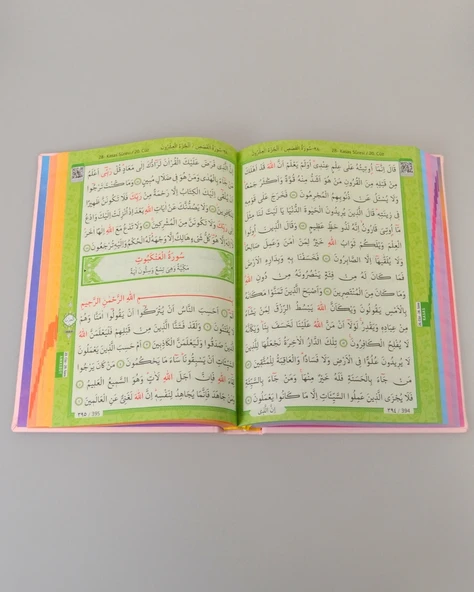 ٢٨- سُورَةُ القَصَص / الجُزْءُ العِشْرُونَ
28- Kasas Sûresi / 20. Cüz
قَالَ اِنَّمَٓا اُو۫تٖيتُهُ عَلٰى عِلْمٍ عِنْدٖى اَوَلَمْ يَعْلَمْ اَنَّ اللّٰهَ قَدْ اَهْلَكَ
مِنْ قَبْلِهٖ مِنَ الْقُرُونِ مَنْ هُوَ اَشَدُّ مِنْهُ قُوَّةً وَاَكْثَرُ جَمْعًا
وَلَا يُسْـَٔلُ عَنْ ذُنُوبِهِمُ الْمُجْرِمُونَ فَخَرَجَ عَلٰى قَوْمِهٖ
فٖى زٖينَتِهٖ قَالَ الَّذٖينَ يُرٖيدُونَ الْحَيٰوةَ الدُّنْيَا يَا لَيْتَ لَنَا مِثْلَ
مَٓا اُو۫تِىَ قَارُونُ اِنَّهُ لَذُو حَظٍّ عَظٖيمٍ وَقَالَ الَّذٖينَ اُو۫تُوا
الْعِلْمَ وَيْلَكُمْ ثَوَابُ اللّٰهِ خَيْرٌ لِمَنْ اٰمَنَ وَعَمِلَ صَالِحًا
وَلَا يُلَقّٰيهَٓا اِلَّا الصَّابِرُونَ فَخَسَفْنَا بِهٖ وَبِدَارِهِ الْاَرْضَ
فَمَا كَانَ لَهُ مِنْ فِئَةٍ يَنْصُرُونَهُ مِنْ دُونِ اللّٰهِ
وَمَا كَانَ مِنَ الْمُنْتَصِرٖينَ وَاَصْبَحَ الَّذٖينَ تَمَنَّوْا مَكَانَهُ
بِالْاَمْسِ يَقُولُونَ وَيْكَاَنَّ اللّٰهَ يَبْسُطُ الرِّزْقَ لِمَنْ يَشَٓاءُ
مِنْ عِبَادِهٖ وَيَقْدِرُ لَوْلَٓا اَنْ مَنَّ اللّٰهُ عَلَيْنَا لَخَسَفَ بِنَا وَيْكَاَنَّهُ
لَا يُفْلِحُ الْكَافِرُونَ تِلْكَ الدَّارُ الْاٰخِرَةُ نَجْعَلُهَا لِلَّذٖينَ
لَا يُرٖيدُونَ عُلُوًّا فِى الْاَرْضِ وَلَا فَسَادًا وَالْعَاقِبَةُ لِلْمُتَّقٖينَ
مَنْ جَٓاءَ بِالْحَسَنَةِ فَلَهُ خَيْرٌ مِنْهَا وَمَنْ جَٓاءَ بِالسَّيِّئَةِ
فَلَا يُجْزَى الَّذٖينَ عَمِلُوا السَّيِّـَٔاتِ اِلَّا مَا كَانُوا يَعْمَلُونَ
اِنَّ الَّذٖى
٣٩٤ / 394
٢٨- سُورَةُ القَصَص / الجُزْءُ العِشْرُونَ
28- Kasas Sûresi / 20. Cüz
الَّذٖى فَرَضَ عَلَيْكَ الْقُرْاٰنَ لَرَٓادُّكَ اِلٰى مَعَادٍ قُلْ رَبّٖٓى اَعْلَمُ
مَنْ جَٓاءَ بِالْهُدٰى وَمَنْ هُوَ فٖى ضَلَالٍ مُبٖينٍ وَمَا كُنْتَ تَرْجُٓوا
اَنْ يُلْقٰٓى اِلَيْكَ الْكِتَابُ اِلَّا رَحْمَةً مِنْ رَبِّكَ فَلَا تَكُونَنَّ ظَهٖيرًا
وَلَا يَصُدُّنَّكَ عَنْ اٰيَاتِ اللّٰهِ بَعْدَ اِذْ اُنْزِلَتْ اِلَيْكَ وَادْعُ
رَبِّكَ وَلَا تَكُونَنَّ مِنَ الْمُشْرِكٖينَ وَلَا تَدْعُ مَعَ اللّٰهِ اِلٰهًا اٰخَرَ
اِلَّا هُوَ كُلُّ شَىْءٍ هَالِكٌ اِلَّا وَجْهَهُ لَهُ الْحُكْمُ وَاِلَيْهِ تُرْجَعُونَ
سُورَةُ الْعَنْكَبُوتِ
مَكِّيَّةٌ وَهِىَ تِسْعٌ وَسِتُّونَ اٰيَةً
اللّٰهِ الرَّحْمٰنِ الرَّحٖيمِ
اَحَسِبَ النَّاسُ اَنْ يُتْرَكُٓوا اَنْ يَقُولُٓوا اٰمَنَّا وَهُمْ
يُفْتَنُونَ وَلَقَدْ فَتَنَّا الَّذٖينَ مِنْ قَبْلِهِمْ فَلَيَعْلَمَنَّ اللّٰهُ
صَدَقُوا وَلَيَعْلَمَنَّ الْكَاذِبٖينَ اَمْ حَسِبَ الَّذٖينَ يَعْمَلُونَ
السَّيِّـَٔاتِ اَنْ يَسْبِقُونَا سَٓاءَ مَا يَحْكُمُونَ مَنْ كَانَ يَرْجُوا
اللّٰهِ فَاِنَّ اَجَلَ اللّٰهِ لَاٰتٍ وَهُوَ السَّمٖيعُ الْعَلٖيمُ
وَمَنْ جَاهَدَ فَاِنَّمَا يُجَاهِدُ لِنَفْسِهٖ اِنَّ اللّٰهَ لَغَنِىٌّ عَنِ الْعَالَمٖينَ
٣٩٥ / 395